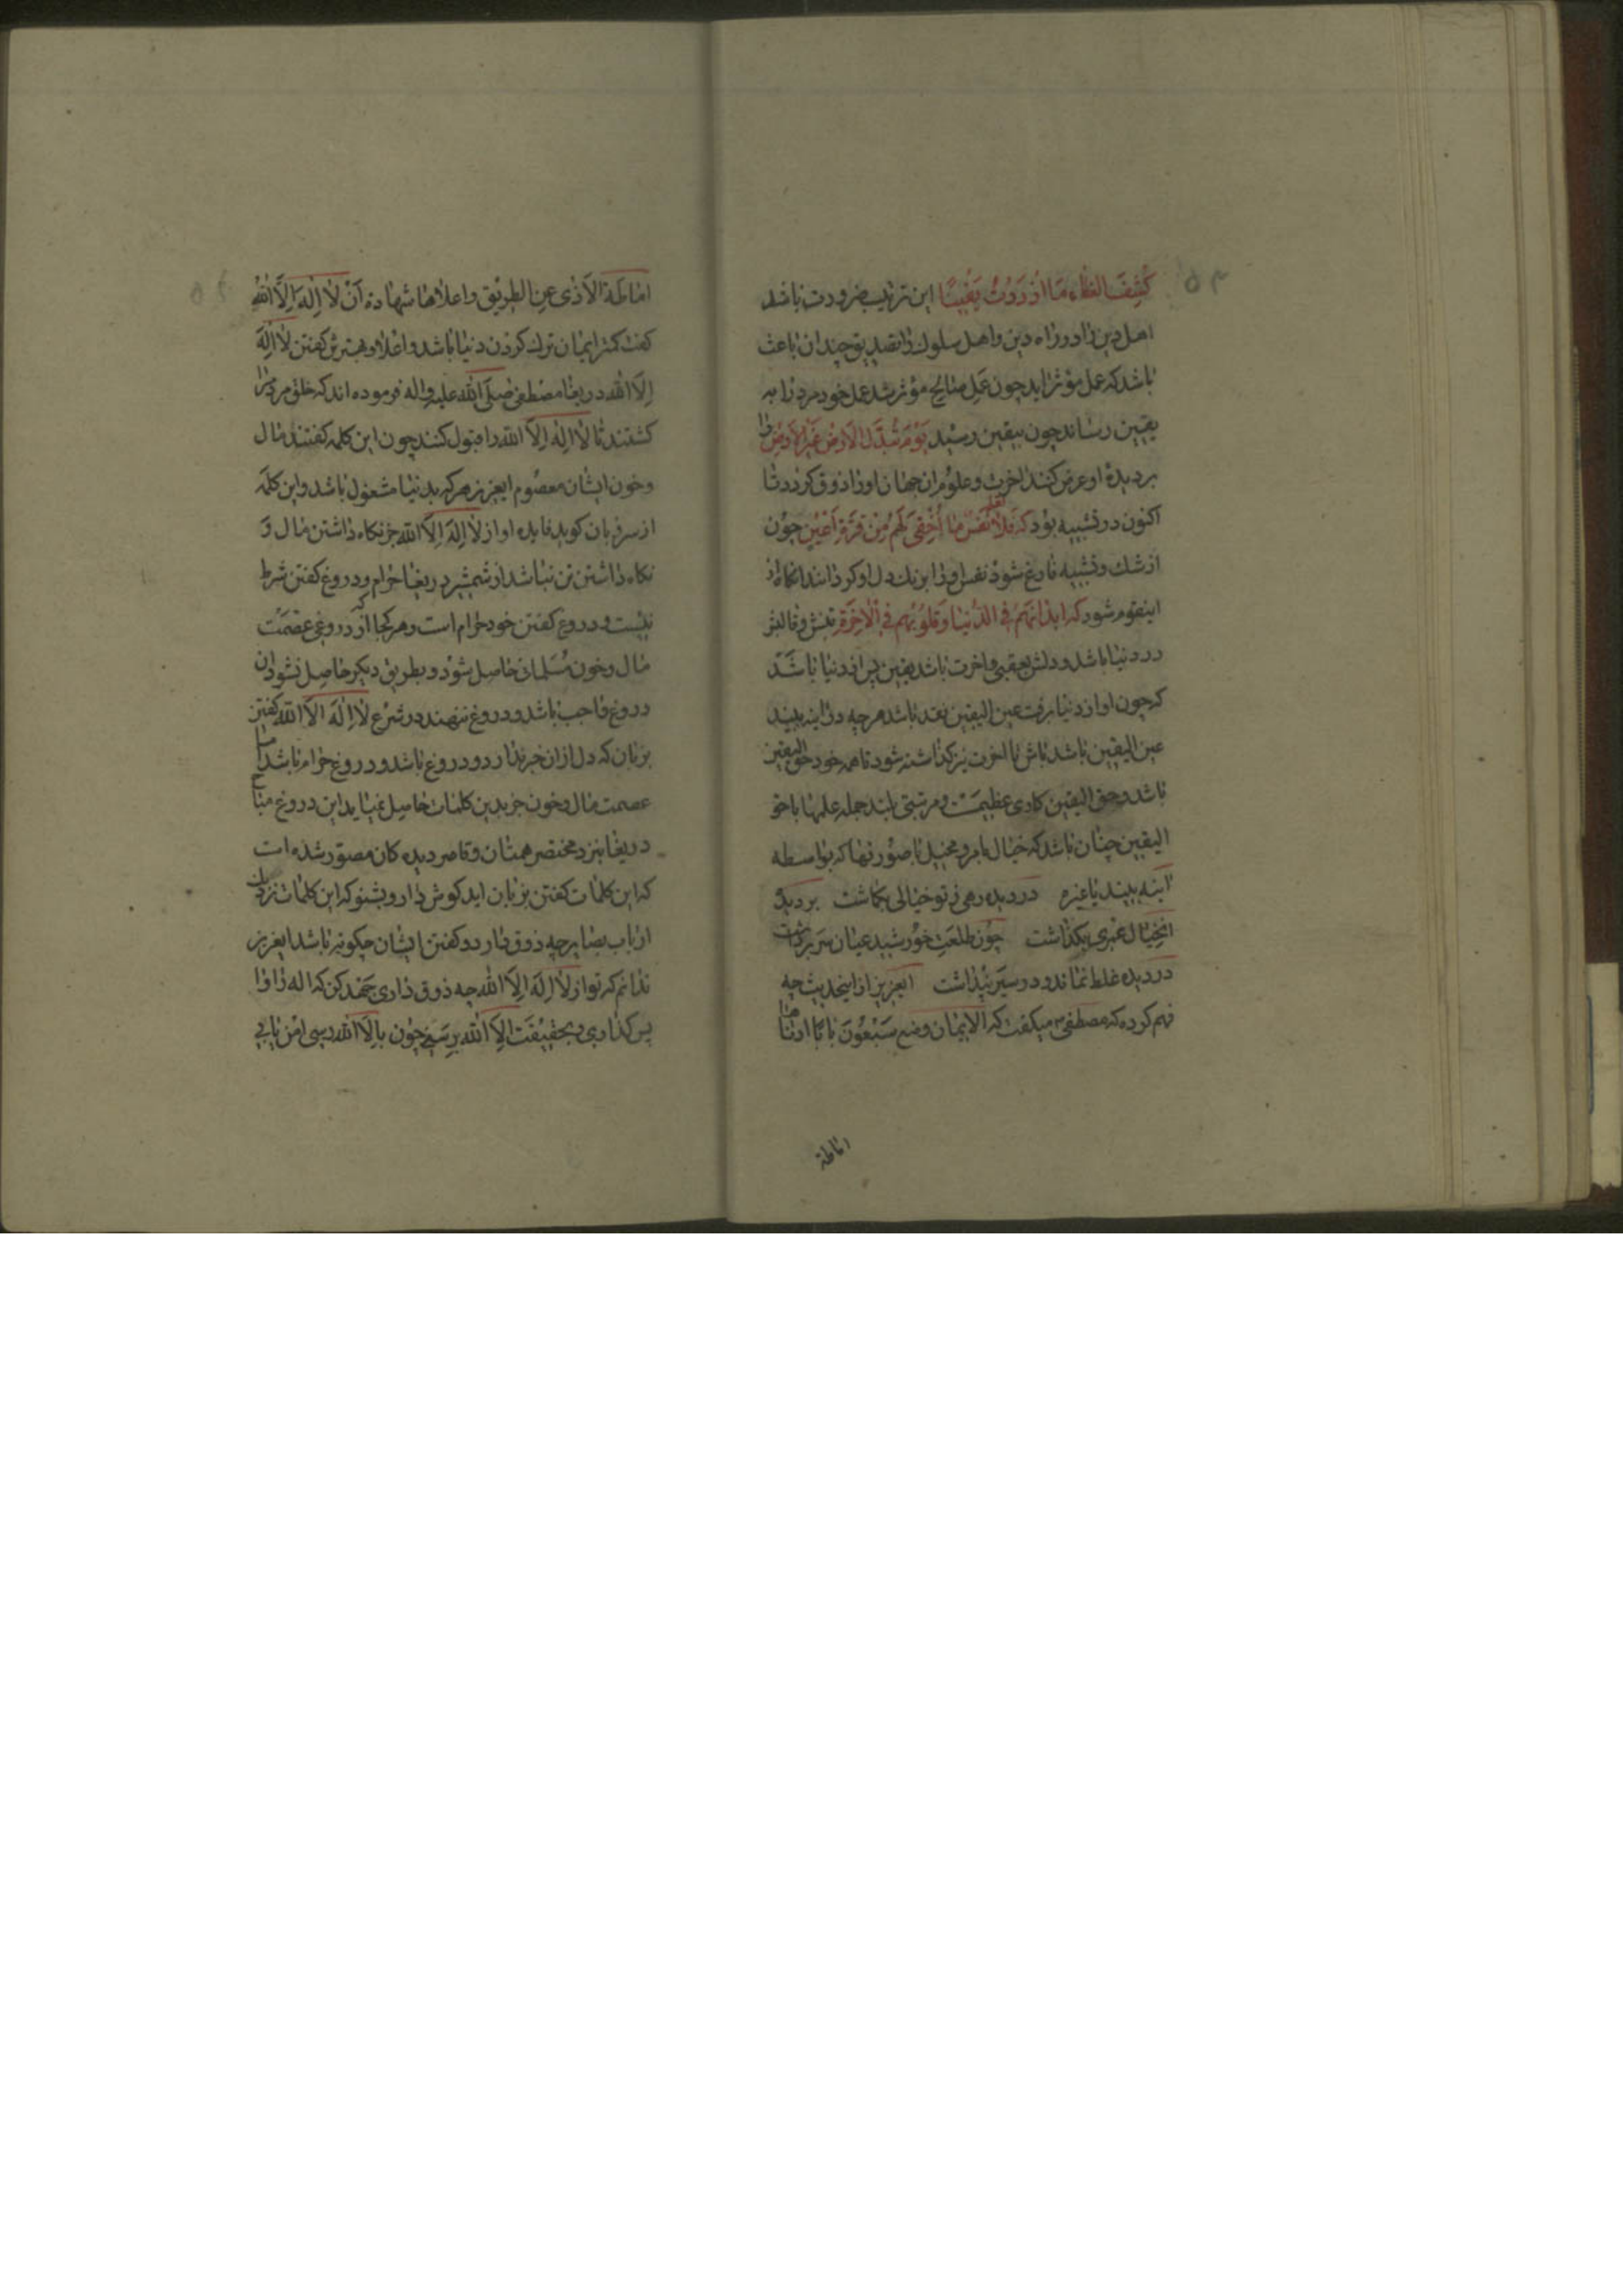 ۵۴
كُشِفَ الغطاء مَا ازْدَدْتُ يَقيناً این ترتیب ضرورت باشد
اهل دین را در راه دین و اهل سلوک را تصدیق چندان باعث
باشد که عمل مؤثر اید چون عمل صالح مؤثر شد عمل خود مرد را به
یقین رساند چون بیقین رسید یَوْمَ تُبَدَّلُ الاَرْضُ غَیْرَ الاَرْضِ را
بر دیدهٔ او عرض کنند اخرت و علوم ان جهان او را ذوق کردد تا
اکنون در تشبیه بود که فَلا تَعلم نَفْسٌ ما أُخْفِیَ لَهُم مِنْ قُرَّةِ اَعْیُنٍ چون
از شک و تشبیه فارغ شود نفس او را برنک دل او کردانند انکاه از
اینقوم شود که ابدانهم فی الدُّنیا وَ قلوبُهُم فی الْاخِرَةِ تنش و قالبش
در دنیا باشد و دلش بعقبی و اخرت باشد یقین پس از دنیا باشد
که چون او از دنیا برفت عین الیقین نقد باشد هرچه در اینه بیند
عین الیقین باشد باش تا اخرت نیز کذاشته شود تا همه خود حق الیقین
باشد و حق الیقین کاری عظیمست و مرتبتی بلند جمله علمها با حق
الیقین چنان باشد که خیال نامرد مخیل با صورتها که بواسطه
اینه بیند یا غیره در دیده رهی ز تو خیالی بکاشت بر دیدهٔ
انخیال عمری بکذاشت چون طلعت خورشید عیان سر برداشت
در دیده غلط نماند و در سیر نپداشت ایعزیز از اینحدیث چه
فهم کرده که مصطفی ص میکفت که الایمان بضع سَبْعُونَ بابًا ادناها
اماطة
اماطة الاَذی عن الطریق و اعلاها شهادة اَنْ لا اِلٰهَ اِلاَّ اللهُ
کفت کمتر ایمان ترک کردن دنیا باشد و اعلا و بهترش کفتن لا اِلٰهَ
اِلاَّ الله دریغا مصطفی صلّی الله علیه و اله فرموده اند که خلق مردمرا
کشتند تا لا اِلٰهَ اِلاَّ الله را قبول کنند چون این کلمه کفتند مال
و خون ایشان معصوم ایعزیز هرکه بدنیا مشغول باشد و این کلمه
از سر زبان کوید فایده او از لا اِلٰهَ اِلاَّ الله جز نکاه داشتن مال و
نکاه داشتن تن نباشد از شمشیر دریغا حرام و دروغ کفتن شرط
نیست و دروغ کفتن خود حرام است و هر کجا که از دروغی عصمت
مال و خون مُسلمانی حاصل شود و بطریق دیکر حاصل نشود ان
دروغ واجب باشد و دروغ ننهند در شرع لا اِلٰهَ الاّ الله کفتن
بزبان که دل ازان خبر ندارد و دروغ باشد و دروغ حرام باشد اما
عصمت مال و خون جز بدین کلمات حاصل نمیاید این دروغ مباح
دریغا بنزد مختصر همتان و قاصر دیده کان مصوّر شده است
که این کلمات کفتن بزبان اید کوش دار و بشنو که این کلمات نزد
ارباب بصایر چه ذوق دارد و کفتن ایشان چکونه باشد ایعزیز
ندانم که تو از لا اِلٰهَ اِلاَّ الله چه ذوق داری جهد کن که اله را وا
پس کذاری و بحقیقت اِلاَّ الله برسی چون باِلاَّ الله رسی امن یابی